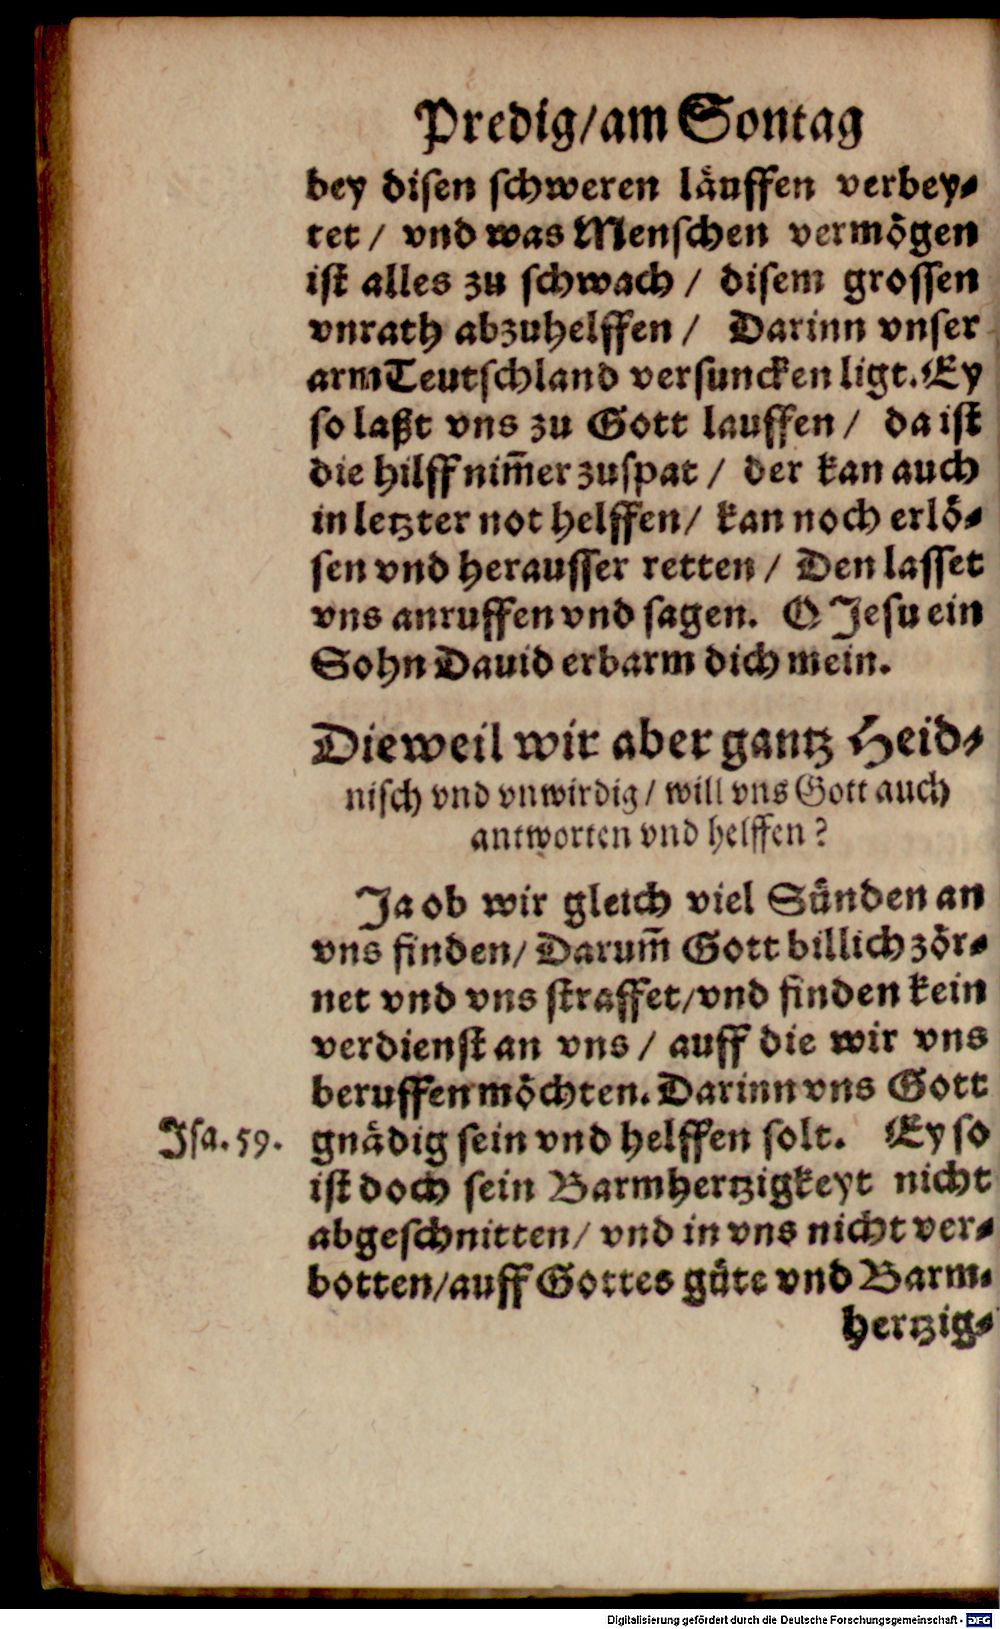 Predig/am Sontag
bey disen schweren läuffen verbey⸗
tet / vnd was Menschen vermögen
ist alles zu schwach / disem grossen
vnrath abzuhelffen / Darinn vnser
arm Teutschland versuncken ligt. Ey
so laßt vns zu Gott lauffen / da ist
die hilff nim̃er zuspat / der kan auch
in letzter not helffen/ kan noch erlö⸗
sen vnd herausser retten / Den lasset
vns anruffen vnd sagen. O Jesu ein
Sohn Dauid erbarm dich mein.
Dieweil wir aber gantz Heid⸗
nisch vnd vnwirdig/ will vns Gott auch
antworten vnd helffen?
Ja ob wir gleich viel Sünden an
vns finden/ Darum̃ Gott billich zör⸗
net vnd vns straffet/vnd finden kein
verdienst an vns / auff die wir vns
beruffen möchten. Darinn vns Gott
Jsa. 59. gnädig sein vnd helffen solt. Ey so
ist doch sein Barmhertzigkeyt nicht
abgeschnitten/ vnd in vns nicht ver⸗
botten/auff Gottes güte vnd Barm⸗
hertzig⸗
Digitalisierung gefördert durch die Deutsche Forschungsgemeinschaft - DFG